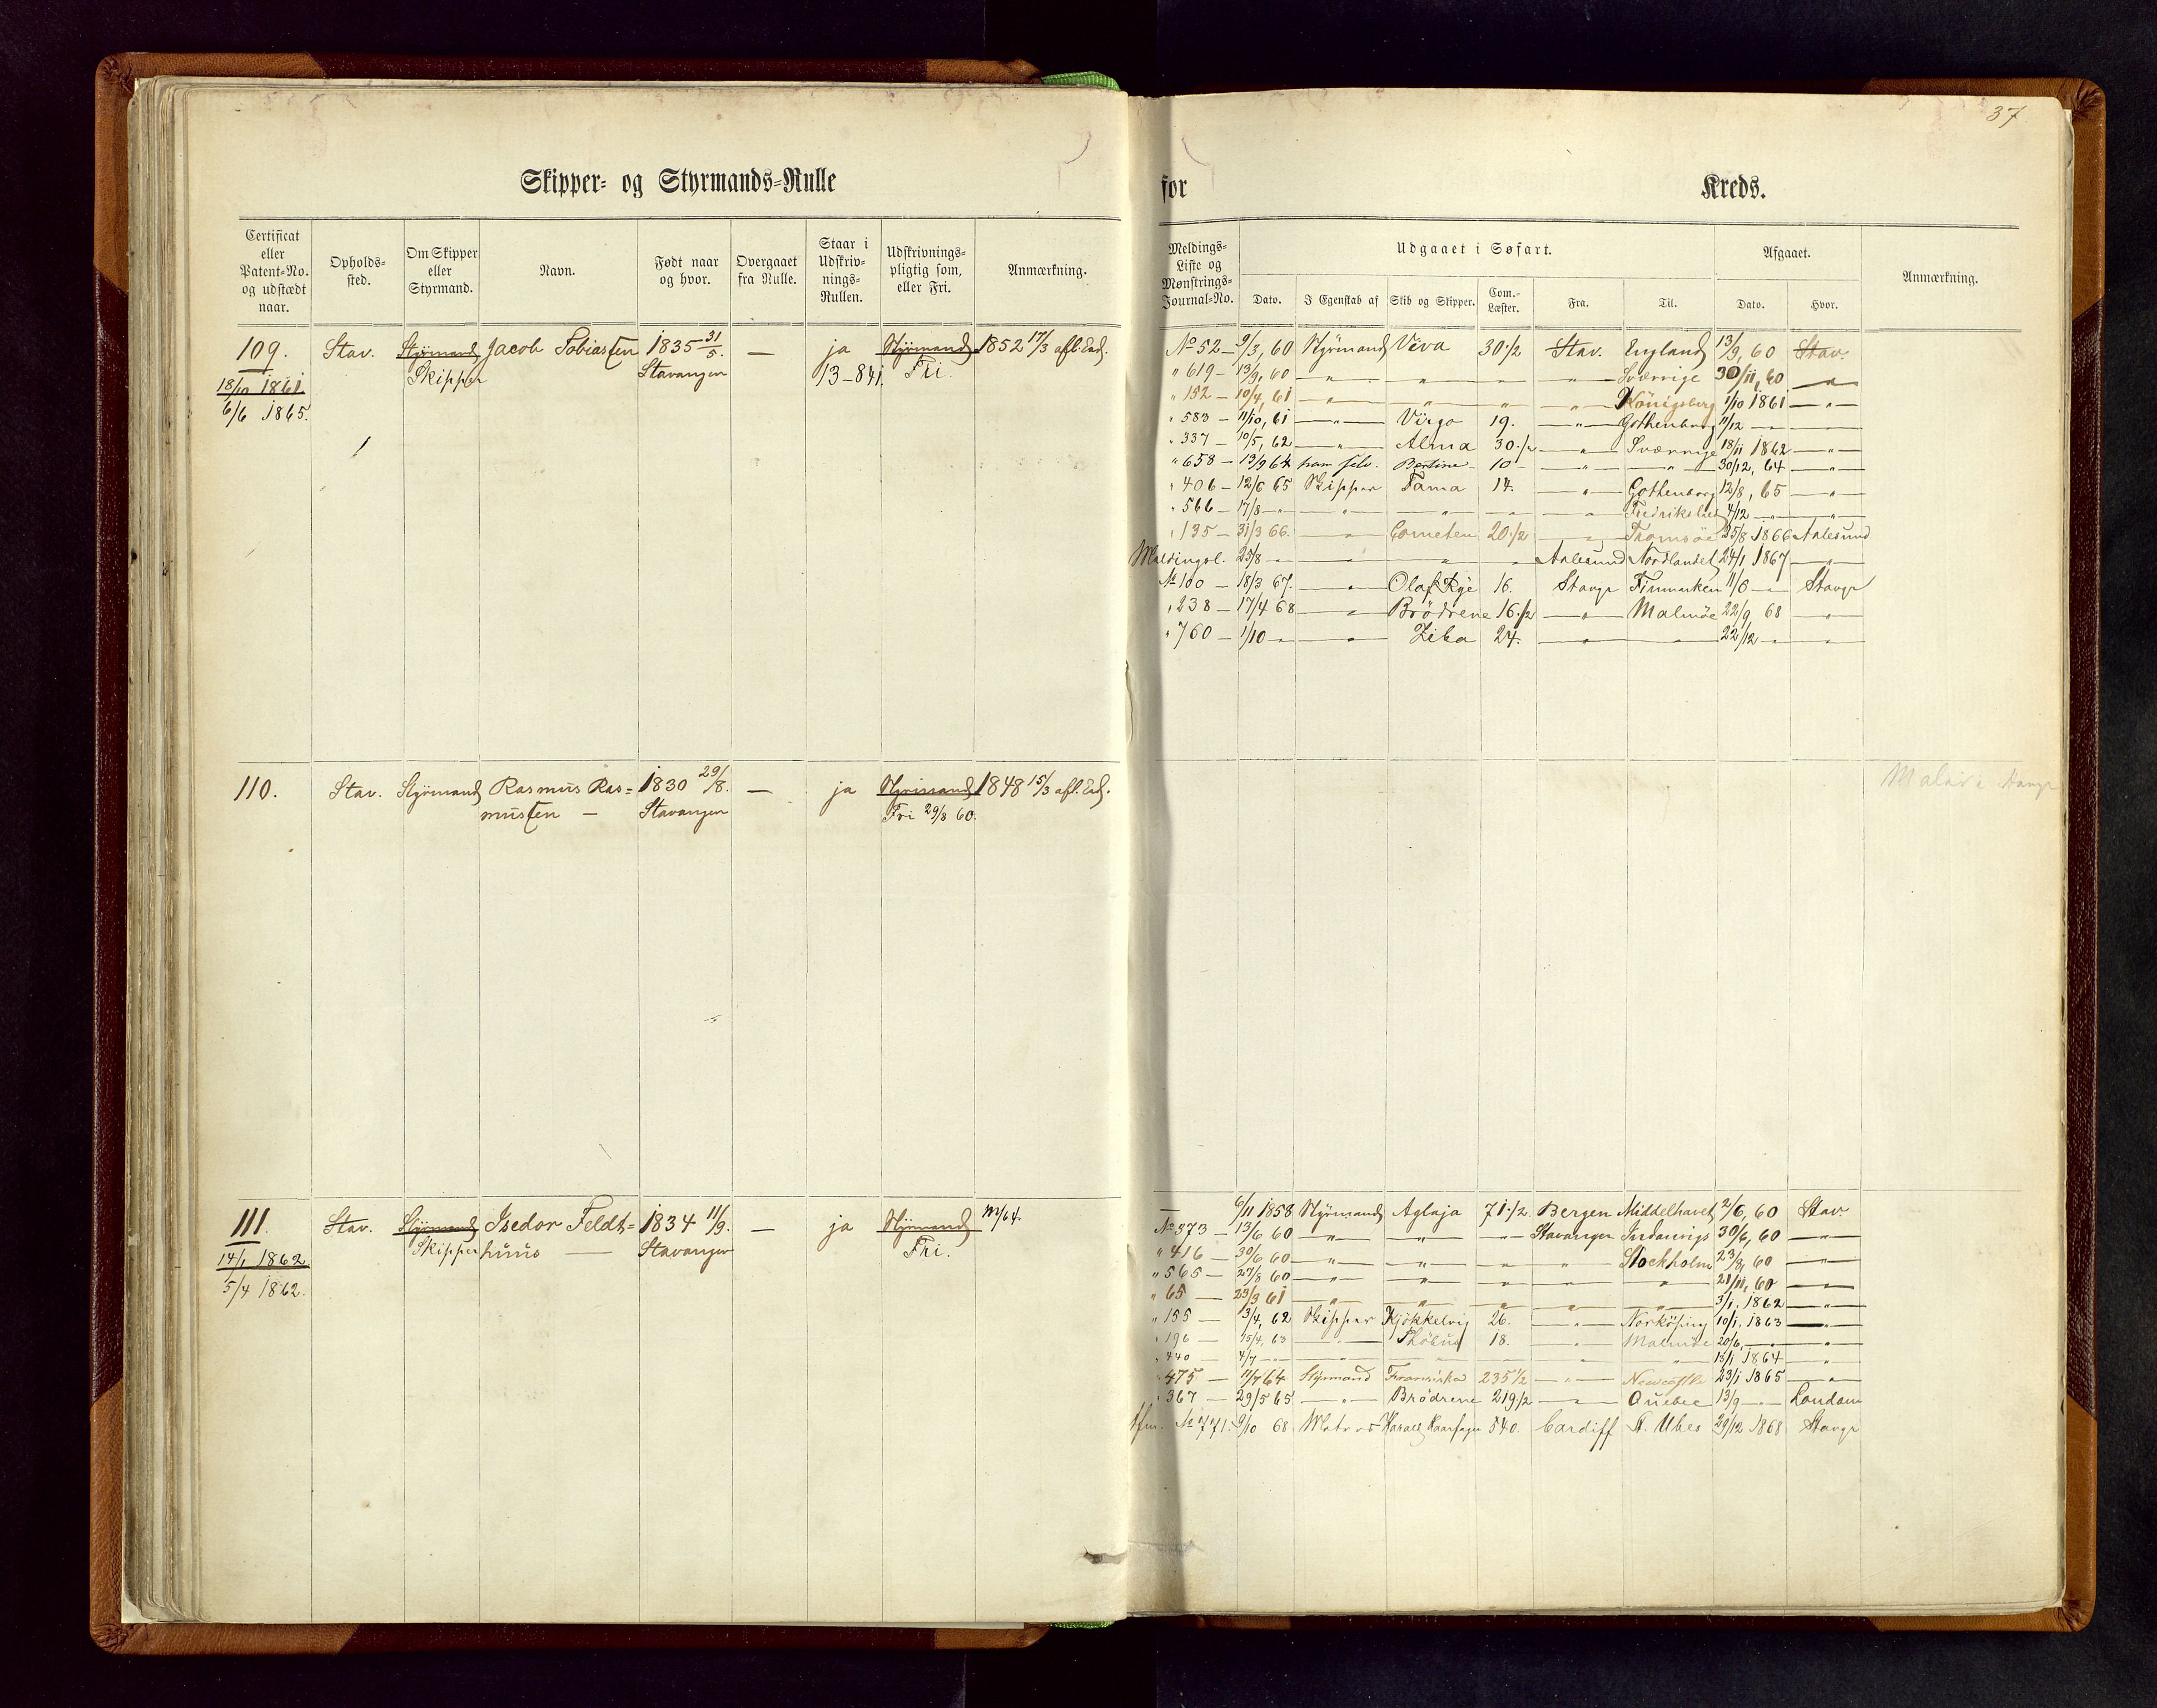 37
Skipper= og Styrmands=Rulle
for Kreds.
Certificat eller Patent=No. og udstædt naar.
Opholds=sted.
Om Skipper eller Styrmand.
Navn.
Født naar og hvor.
Overgaaet fra Rulle.
Staar i Udskriv=nings=Rullen.
Udskrivnings=pligtig som, eller Fri.
Anmærkning.
Meldings=Liste og Mønstrings=Journal=No.
Udgaaet i Søfart.
Dato. I Egenskab af Skib og Skipper. Com.=Læster. Fra. Til.
Afgaaet.
Dato. Hvor.
Anmærkning.
109. Stav. Styrmand Jacob Tobiassen 1835 31/5. — ja Styrmand 1852 17/3 afl. Ed.
Skipper Stavanger 13-841. Fri.
18/10 1861
6/6 1865.
No 52 — 9/3, 60 Styrmand Viva 30 1/2 Stav. England 13/9, 60 Stav.
" 619 — 13/9, 60 — " — " — " — " — Sverrige 30/11, 60 — " —
" 152 — 10/4, 61 — " — " — " — " — Königsberg 1/10 1861 — " —
" 583 — 11/10, 61 — " — Virgo 19. — " — Gothenborg 11/12 — " —
" 337 — 10/5, 62 — " — Alma 30 1/2 — " — Sverrige 18/11 1862 — " —
" 658 — 13/9 64 ham selv. Bertine 10 — " — " — 30/12, 64 — " —
" 406 — 12/6 65 Skipper Fama 14. — " — Gothenborg 12/8, 65 — " —
" 566 — 17/8 — " — " — " — " — Fredrikshald 4/12 — " — " —
" 135 — 31/3 66. — " — Cometen 20 1/2 — " — Tromsöe 25/8 1866 Aalesund
Meldingsl. 25/8 — " — " — " — Aalesund Nordlandet 24/1 1867 — " —
No 100 — 18/3 67. — " — Olaf Rye 16. Stavgr Finmarken 11/6 — " — Stavgr
" 238 — 17/4 68 — " — Brödrene 16 1/2 — " — Malmöe 22/9 68 — " —
" 760 — 1/10 — " — " — Ziba 24. — " — " — 22/12 — " — " —
110. Stav. Styrmand Rasmus Ras= 1830 29/8. — ja Styrmand 1848 15/3 afl. Ed.
mussen — Stavanger Fri 29/8 60.
111. Stav. Styrmand Isedor Feldt= 1834 11/9. — ja Styrmand
Skipper huus — Stavanger Fri.
14/1 1862
5/4 1862.
— 6/11 1858 Styrmand Aglaja 71 1/2. Bergen Middelhavet 2/6, 60 Stav.
No 373 — 13/6 60 — " — " — " — Stavanger Indenrigs 30/6, 60 — " —
" 416 — 30/6 60 — " — " — " — " — Stockholm 23/8, 60 — " —
" 565 — 27/8 60 — " — " — " — " — " — 21/11, 60 — " —
" 65 — 23/3 61 — " — " — " — " — " — 3/1, 1862 — " —
" 155 — 3/4, 62 Skipper Kjökkelvig 26. — " — Norköping 10/1, 1863 — " —
" 196 — 15/4, 63 — " — Phöbus 18. — " — Malmöe 20/6, — " — " —
" 440 — 4/7 — " — " — " — " — " — " — 15/1 1864 — " —
" 475 — 11/7 64 Styrmand Franciska 235 1/2 — " — Newcastle 23/1 1865 — " —
" 367 — 29/5 65 — " — Brödrene 219 1/2 — " — Quebec 13/9 — " — London
No 771. 9/10 68 Harald Haarfager 540. Cardiff St. Ubes 29/12 1868 Stavgr